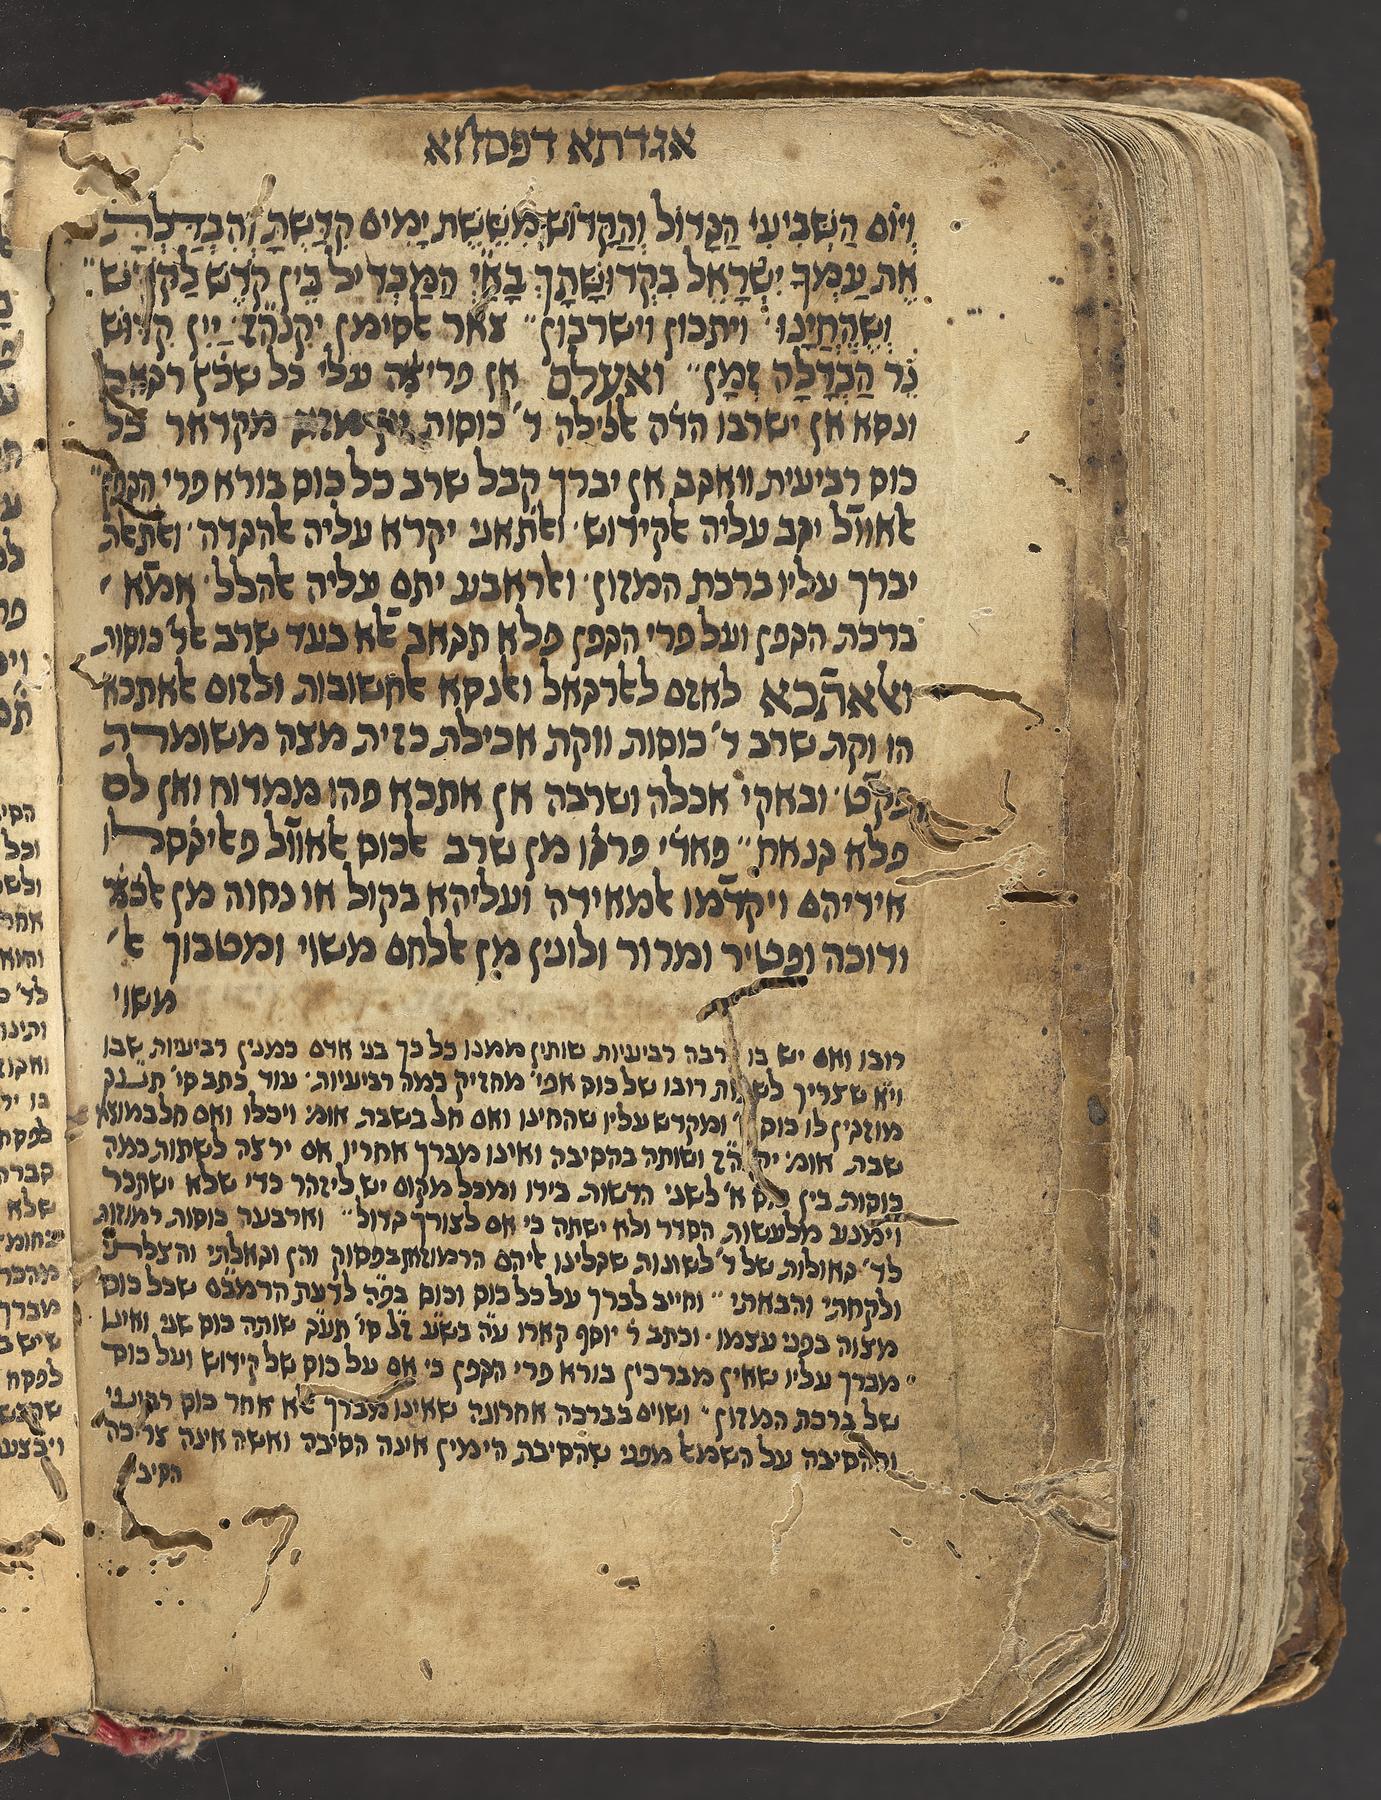 אגדתא דפסחא
וְיוֹם הַשְּׁבִיעִי הַגָּדוֹל וְהַקָּדוֹשׁ מִשֵּׁשֶׁת יָמִים קִדַּשְׁתָּ וְהִבְדַּלְתָּ
אֶת עַמְּךָ יִשְׂרָאֵל בִּקְדוּשָּׁתָךְ בָּאַיְ הַמַּבְדִיל בֵּין קֹדֶשׁ לְקֹדֶשׁ
וְשֶׁהֶחֱיָנוּ ויתכון וישרבון צאר אסימן יקנהז יַיִן קִדּוּשׁ
נֵר הַבְדָלָה זְמָן ואעלם אן פריצה עלי כל שכץ רגאל
ונסא אן ישרבו הדה אלילה ד׳ כוסות מקדאר כל
כוס רביעית וואגב אן יברך קבל שרב כל כוס בורא פרי הגפן
אאוול יגב עליה אקידוש ואתאני יקרא עליה אהגדה ואתאלת
יברך עליו ברכת המזון ואראבע יתם עליה אהלל אמא
ברכת הגפן ועל פרי הגפן פלא תגאב אלא בעד שרב אל כוסות
ואאתכא לאזם לארגאל ואנסא אחשובות ולזום אאתכא
הו וקת שרב ד׳ כוסות ווקת אכילת כזית מצה משומרת
פקט ובאקי אכלה ושרבה אן אתכא פהו ממדוח ואן לם
פלא גנאח פאדי פרגו מן שרב אכוס אאוול פאיגסלו
אידיהם ויקדמו אמאידה ועליהא בקול או נחוה מן אכצר
ודוכה ופטיר ומרור ולונין מן אלחם משוי ומטבוך א׳
משוי
רובו ואם יש בו רבה רביעיות שותין ממנו כל כך בני אדם כמנין רביעיות שבו
ויא שצריך לשתות רובו של כוס אפי׳ מחזיק כמה רביעיות עוד כתב סי׳
מוזגין לו כוס ומקדש עליו שהחינו ואם חל בשבת אומ׳ ויכלו ואם חל במוצא
שבת אומ׳ יקנהז ושותה בהסיבה ואינו מברך אחריו אם ירצה לשתות כמה
כוסות בין כוס א׳ לשני הרשות בידו ומכל מקום יש ליזהר כדי שלא ישתכר
וימנע מלעשות הסדר ולא ישתה כי אם לצורך גדול וארבעה כוסות רמוזות
לד׳ גאולות של ד׳ לשונות שקלינו איהם הרמוזות בפסוק והן וגאלתי והצלתי
ולקחתי והבאתי וחייב לברך על כל כוס וכוס בפה לדעת הרמבם שכל כוס
מצוה בפני עצמו וכתב ר׳ יוסף קארו עה בשע זל סי׳ תעג שותה כוס שני ואינו
מברך עליו שאין מברכין בורא פרי הגפן כי אם על כוס של קידוש ועל כוס
של ברכת המזון ושוים בברכה אחרונה שאינו מברך אלא אחר כוס רביעי
וההסיבה על השמאל מפני שהסיבת הימין אינה הסיבה ואשה אינה צריכה
הסיב